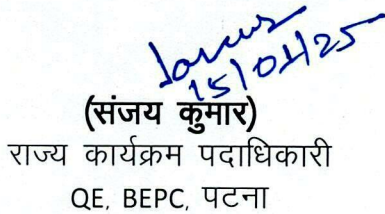 15/01/25
(संजय कुमार)
राज्य कार्यक्रम पदाधिकारी
QE, BEPC, पटना